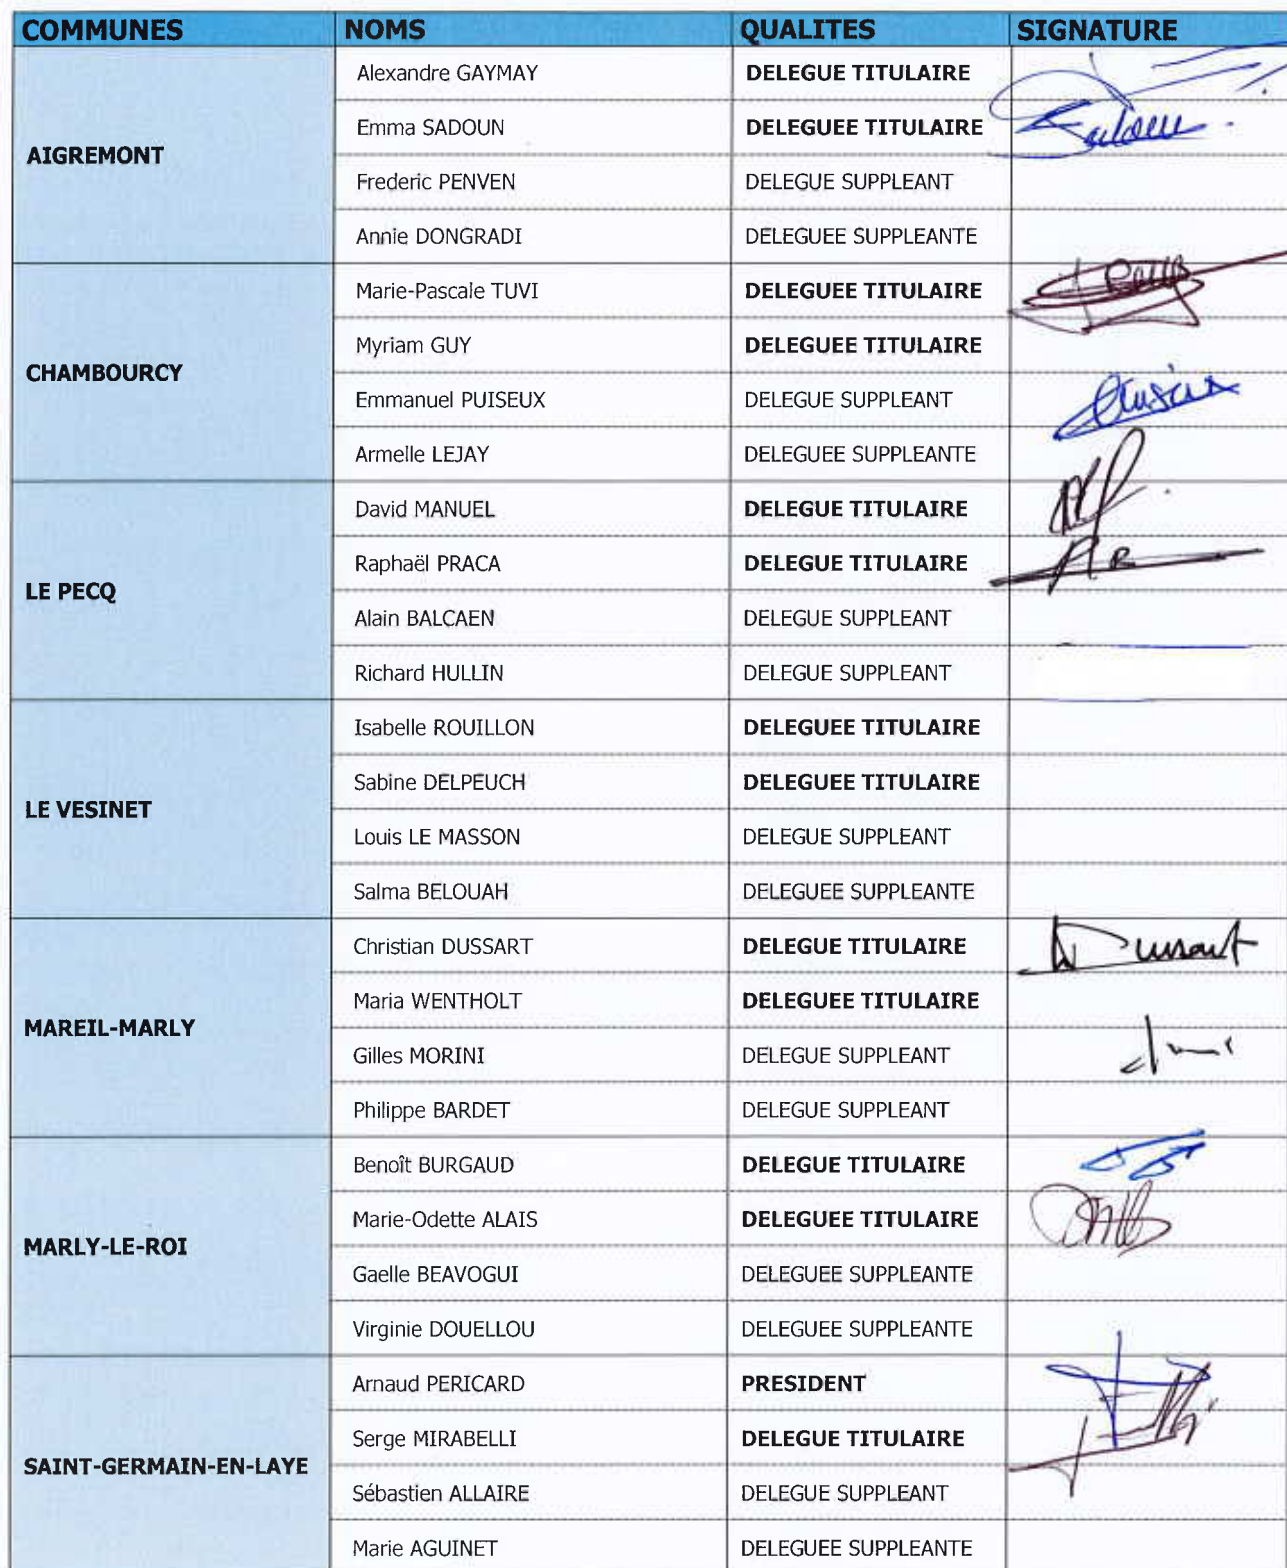 COMMUNES NOMS QUALITES SIGNATURE
AIGREMONT
Alexandre GAYMAY DELEGUE TITULAIRE
Emma SADOUN DELEGUEE TITULAIRE Sadoun
Frederic PENVEN DELEGUE SUPPLEANT
Annie DONGRADI DELEGUEE SUPPLEANTE
CHAMBOURCY
Marie-Pascale TUVI DELEGUEE TITULAIRE
Myriam GUY DELEGUEE TITULAIRE
Emmanuel PUISEUX DELEGUE SUPPLEANT Puiseux
Armelle LEJAY DELEGUEE SUPPLEANTE
LE PECQ
David MANUEL DELEGUE TITULAIRE
Raphaël PRACA DELEGUE TITULAIRE
Alain BALCAEN DELEGUE SUPPLEANT
Richard HULLIN DELEGUE SUPPLEANT
LE VESINET
Isabelle ROUILLON DELEGUEE TITULAIRE
Sabine DELPEUCH DELEGUEE TITULAIRE
Louis LE MASSON DELEGUE SUPPLEANT
Salma BELOUAH DELEGUEE SUPPLEANTE
MAREIL-MARLY
Christian DUSSART DELEGUE TITULAIRE Dussart
Maria WENTHOLT DELEGUEE TITULAIRE
Gilles MORINI DELEGUE SUPPLEANT
Philippe BARDET DELEGUE SUPPLEANT
MARLY-LE-ROI
Benoît BURGAUD DELEGUE TITULAIRE
Marie-Odette ALAIS DELEGUEE TITULAIRE
Gaelle BEAVOGUI DELEGUEE SUPPLEANTE
Virginie DOUELLOU DELEGUEE SUPPLEANTE
SAINT-GERMAIN-EN-LAYE
Arnaud PERICARD PRESIDENT
Serge MIRABELLI DELEGUE TITULAIRE
Sébastien ALLAIRE DELEGUE SUPPLEANT
Marie AGUINET DELEGUEE SUPPLEANTE